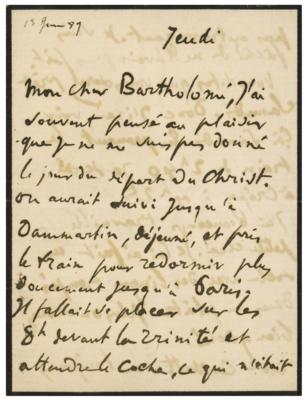 13 Juin 89
Jeudi
Mon cher Bartholomé, J'ai
souvent pensé au plaisir
que je ne me suis pas donné
le jour du départ du Christ.
On aurait suivi jusqu'à
Dammartin, déjeuné, et pris
le train pour redormir plus
doucement jusqu'à Paris,
Il fallait se placer sur les
8h devant la Trinité et
attendre le coche, ce qui n'était